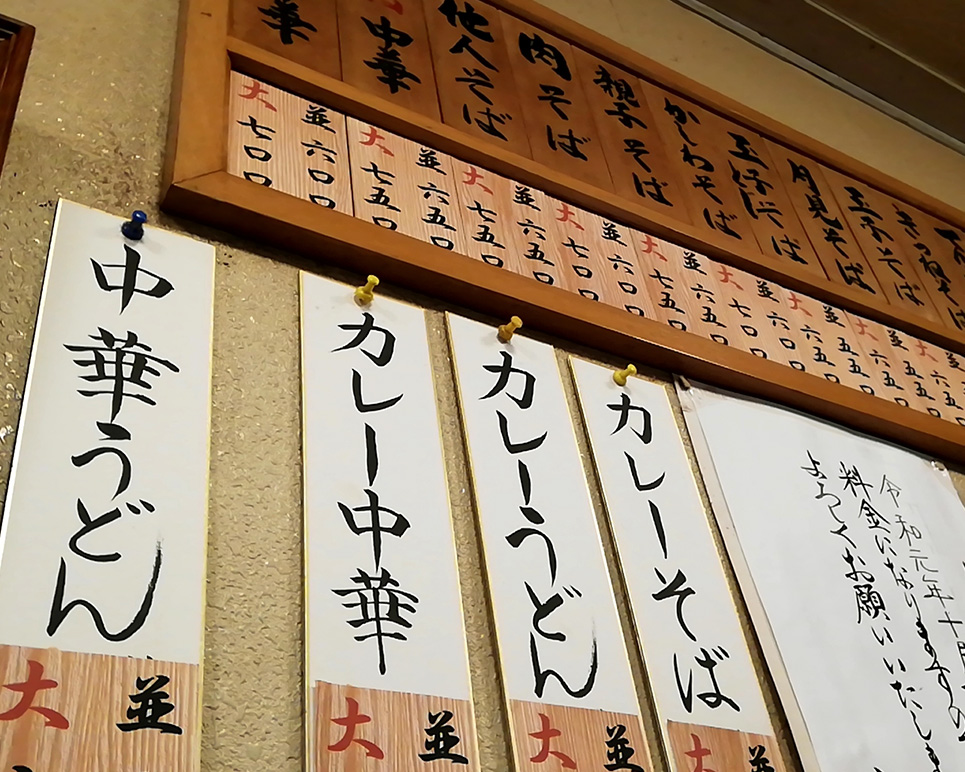 きつねそば
玉子そば
月見そば
かしわそば
親子そば
肉そば
他人そば
中華
華
大六五〇
並五五〇
大六五〇
並五五〇
大六五〇
並六〇〇
大七〇〇
並六五〇
大七五〇
並六〇〇
大七〇〇
並六五〇
大七五〇
並六五〇
大七五〇
並六〇〇
大七〇〇
令和元年十月
料金になりますの
よろしくお願いいたしま
カレーそば
並
大
カレーうどん
並
大
カレー中華
並
大
中華うどん
並
大